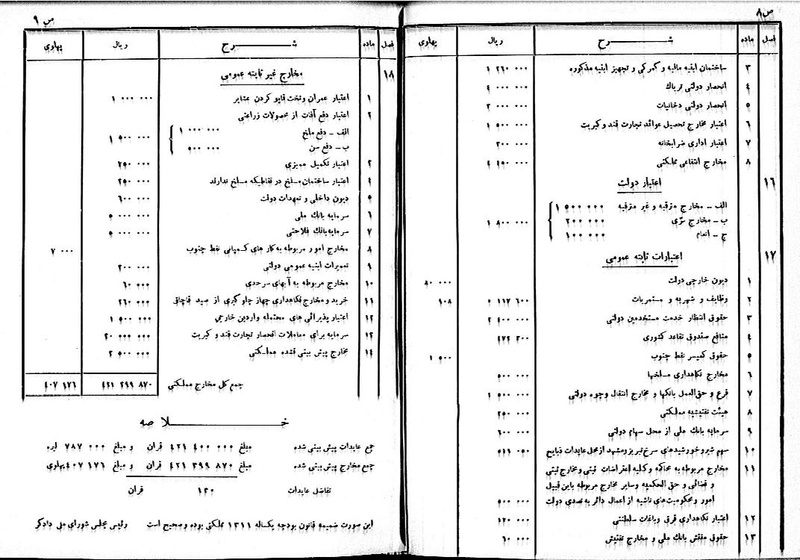 ص ۸
فصل ماده شرح ریال پهلوی
۳ ساختمان ابنیه مالیه و گمرکی و تجهیز ابنیه مذکوره ۱ ۲۶۰ ۰۰۰
۴ انحصار دولتی تریاک
۵ انحصار دولتی دخانیات
۶ اعتبار مخارج تحصیل عوائد تجارت قند و کبریت ۱ ۵۰۰ ۰۰۰
۷ اعتبار اداری ضرابخانه
۸ مخارج انتفاعی مملکتی
۱۶ اعتبار دولت
الف - مخارج مترقبه و غیر مترقبه ۱ ۵۰۰ ۰۰۰
ب - مخارج سری ۲۰۰ ۰۰۰
ج - انعام ۱۰۰ ۰۰۰
۱ ۸۰۰ ۰۰۰
۱۷ اعتبارات ثابته عمومی
۱ دیون خارجی دولت ۸۰ ۰۰۰
۲ وظایف و شهریه و مستمریات ۱۰۸
۳ حقوق انتظار خدمت مستخدمین دولتی
۴ منافع صندوق تقاعد کشوری
۵ حقوق کمیسر نفط جنوب ۱ ۵۰۰
۶ مخارج نگاهداری مسلخها ۵۰۰ ۰۰۰
۷ فرع و حق‌العمل بانکها و مخارج انتقال وجوه دولتی ۱ ۵۰۰ ۰۰۰
۸ هیئت تفتیشیه مملکتی ۲۵۰ ۰۰۰
۹ سرمایه بانک ملی از محل سهام دولتی ۶۰۰ ۰۰۰
۱۰ سهم شیر و خورشیدهای سرخ تبریز و مشهد از محل عایدات ذبایح
۱۱ مخارج مربوطه به محاکمه و کلیه اعتراضات ثبتی و مخارج ثبتی
و قضائی و حق الحکمیه و سایر مخارج مربوطه باین قبیل
امور و محکومیت‌های ناشیه از اعمال دائر به تصدی دولت ۵۰۰ ۰۰۰
۱۲ اعتبار نگاهداری قرق و باغات سلطنتی ۱۲۰ ۰۰۰
۱۳ حقوق مفتش بانک ملی و مخارج تفتیش ۱۰ ۰۰۰
ص ۹
فصل ماده شرح ریال پهلوی
۱۸ مخارج غیر ثابته عمومی
۱ اعتبار عمران و تخت قاپو کردن عشایر ۱ ۰۰۰ ۰۰۰
۲ اعتبار دفع آفات از محصولات زراعتی
الف - دفع ملخ ۱ ۰۰۰ ۰۰۰
ب - دفع سن ۵۰۰ ۰۰۰
۱ ۵۰۰ ۰۰۰
۳ اعتبار تکمیل ممیزی ۲۵۰ ۰۰۰
۴ اعتبار ساختمان مسلخ در نقاطیکه مسلخ ندارند ۲۵۰ ۰۰۰
۵ دیون داخلی و تعهدات دولت ۶۰۰ ۰۰۰
۶ سرمایه بانک ملی
۷ سرمایه بانک فلاحتی
۸ مخارج امور مربوطه به کارهای کمپانی نفط جنوب ۷ ۰۰۰
۹ تعمیرات ابنیه عمومی دولتی ۲۰۰ ۰۰۰
۱۰ مخارج مربوطه به آبهای سرحدی ۶۰ ۰۰۰
۱۱ خرید و مخارج نگاهداری جهاز جلوگیری از صید قاچاقی ۲۶۰ ۰۰۰
۱۲ اعتبار پذیرائی های محتمله واردین خارجی ۱ ۵۰۰ ۰۰۰
۱۳ سرمایه برای معاملات انحصار تجارت قند و کبریت ۲۰ ۰۰۰ ۰۰۰
۱۴ مخارج پیش بینی نشده مملکتی ۲ ۵۰۰ ۰۰۰
جمع کل مخارج مملکتی
خلاصه
جمع عایدات پیش بینی شده مبلغ ۴۲۱ ۴۰۰ ۰۰۰ قران و مبلغ ۷۸۷ ۰۰۰ لیره
جمع مخارج پیش بینی شده مبلغ قران و مبلغ پهلوی
تفاضل عایدات ۱۳۰ قران
این صورت ضمیمه قانون بودجه یکساله ۱۳۱۱ مملکتی بوده و صحیح است رئیس مجلس شورای ملی دادگر